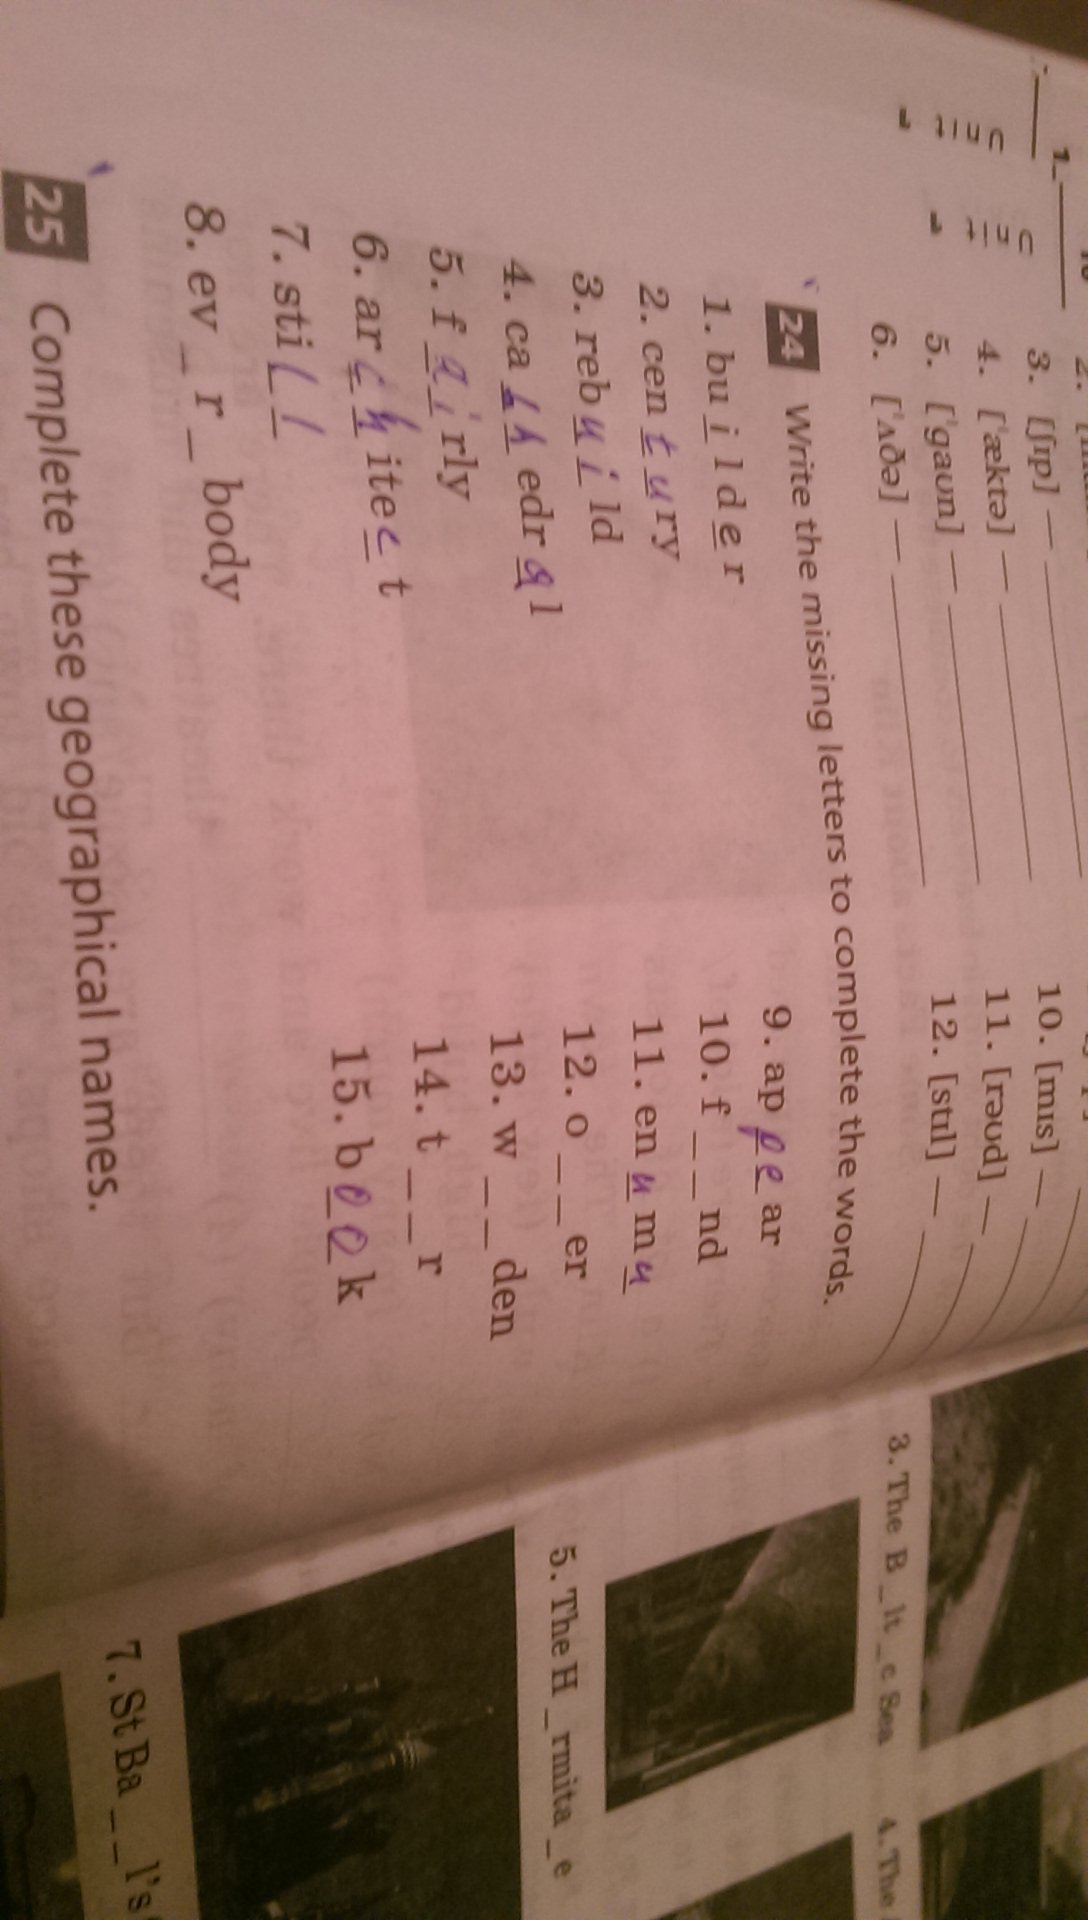 3. [ʃɪp] —
4. [ˈæktə] —
5. [ˈgaʊn] —
6. [ˈʌðə] —
10. [mɪs] —
11. [rəʊd] —
12. [stɪl] —
24 Write the missing letters to complete the words.
1. bu i ld e r
2. cen t u ry
3. reb u i ld
4. ca t h edr a l
5. f a i rly
6. ar c h ite c t
7. sti l l
8. ev _ r _ body
9. ap p e ar
10. f _ _ nd
11. en u m u
12. o _ _ er
13. w _ _ den
14. t _ _ r
15. b o o k
25 Complete these geographical names.
3. The B _ lt _ c Sea
4. The
5. The H _ rmita _ e
7. St Ba _ _ l's